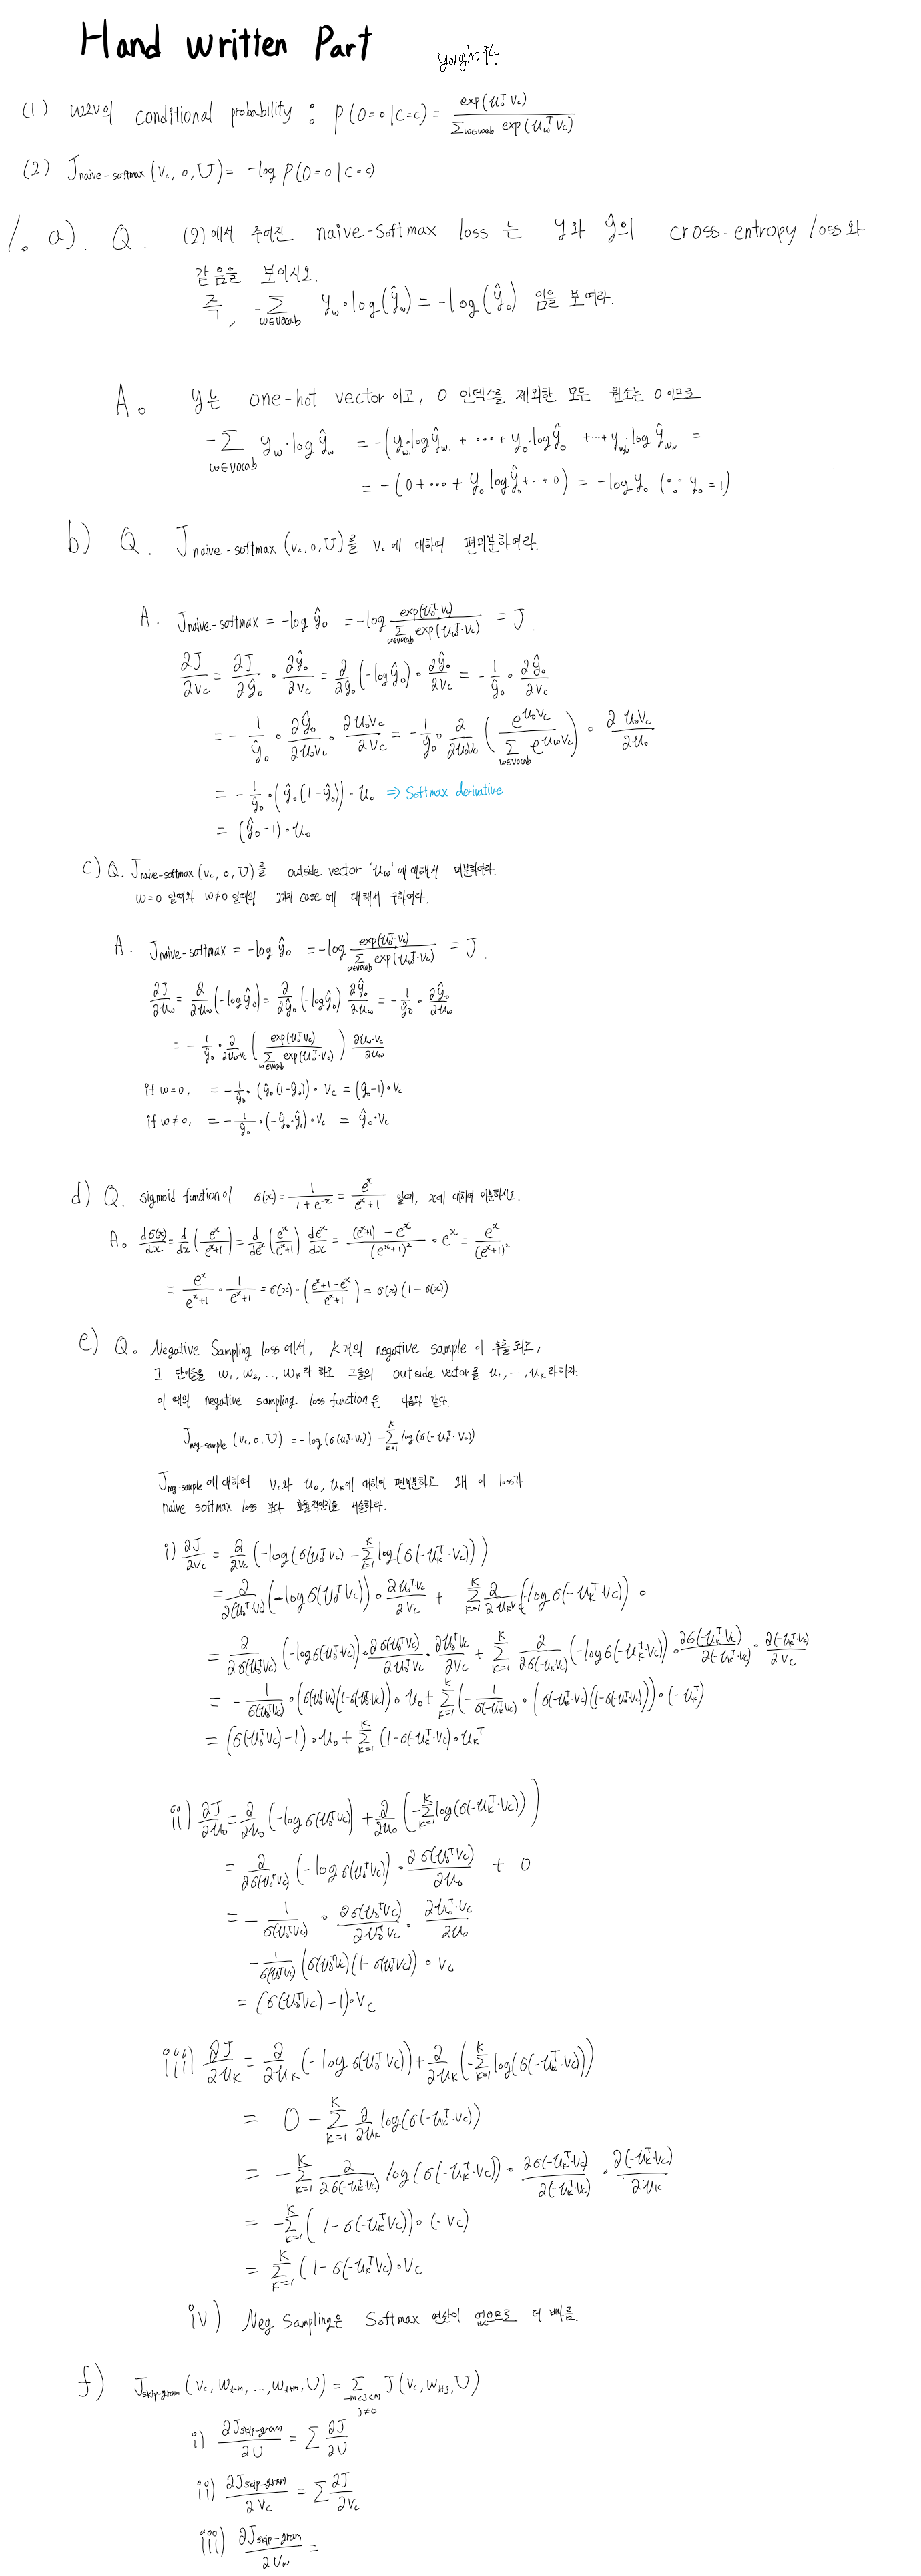 Hand written Part
yongho94
(1) W2V의 conditional probability : P(O=o|C=c) = exp(u_o^T v_c) / Σ_{w∈vocab} exp(u_w^T v_c)
(2) J_{naive-softmax}(v_c, o, U) = -log P(O=o|C=c)
1. a). Q. (2)에서 주어진 naive-softmax loss 는 y와 ŷ의 cross-entropy loss와
같음을 보이시오.
즉, -Σ_{w∈vocab} y_w · log(ŷ_w) = -log(ŷ_o) 임을 보여라.
A. y는 one-hot vector 이고, o 인덱스를 제외한 모든 원소는 0 이므로
-Σ_{w∈vocab} y_w · log ŷ_w = -(y_{w_1} log ŷ_{w_1} + ⋯ + y_o · log ŷ_o + ⋯ + y_w log ŷ_w =
= -(0 + ⋯ + y_o log ŷ_o + ⋯ + 0) = -log y_o (∵ y_o = 1)
b) Q. J_{naive-softmax}(v_c, o, U)를 v_c에 대하여 편미분하여라.
A. J_{naive-softmax} = -log ŷ_o = -log exp(u_o^T·v_c) / Σ_{w∈vocab} exp(u_w^T·v_c) = J.
∂J/∂v_c = ∂J/∂ŷ_o · ∂ŷ_o/∂v_c = ∂/∂ŷ_o (-log ŷ_o) · ∂ŷ_o/∂v_c = -1/ŷ_o · ∂ŷ_o/∂v_c
= -1/ŷ_o · ∂ŷ_o/∂u_o v_c · ∂u_o v_c/∂v_c = -1/ŷ_o · ∂/∂u_o v_o (e^{u_o v_c} / Σ_{w∈vocab} e^{u_w v_c}) · ∂u_o v_c/∂u_o
= -1/ŷ_o · (ŷ_o (1-ŷ_o)) · u_o ⇒ Softmax derivative
= (ŷ_o - 1) · u_o
c) Q. J_{naive-softmax}(v_c, o, U)를 outside vector 'u_w'에 대해서 미분하여라.
w=o 일때와 w≠o 일때의 2가지 case에 대해서 구하여라.
A. J_{naive-softmax} = -log ŷ_o = -log exp(u_o^T·v_c) / Σ_{w∈vocab} exp(u_w^T·v_c) = J.
∂J/∂u_w = ∂/∂u_w (-log ŷ_o) = ∂/∂ŷ_o (-log ŷ_o) ∂ŷ_o/∂u_w = -1/ŷ_o · ∂ŷ_o/∂u_w
= -1/ŷ_o · ∂/∂u_w v_c (exp(u_o^T v_c) / Σ_{w∈vocab} exp(u_w^T·v_c)) ∂u_w·v_c/∂u_w
if w=o, = -1/ŷ_o · (ŷ_o (1-ŷ_o)) · v_c = (ŷ_o-1) · v_c
if w≠o, = -1/ŷ_o · (-ŷ_o·ŷ_o) · v_c = ŷ_o · v_c
d) Q. sigmoid function이 σ(x) = 1/(1+e^{-x}) = e^x/(e^x+1) 일때, x에 대하여 미분하시오.
A. dσ(x)/dx = d/dx (e^x/(e^x+1)) = d/de^x (e^x/(e^x+1)) de^x/dx = ((e^x+1) - e^x)/(e^x+1)² · e^x = e^x/(e^x+1)²
= e^x/(e^x+1) · 1/(e^x+1) = σ(x) · ((e^x+1-e^x)/(e^x+1)) = σ(x)(1-σ(x))
e) Q. Negative Sampling loss에서, K개의 negative sample 이 추출되고,
그 단어들을 w_1, w_2, ..., w_K라 하고 그들의 outside vector를 u_1, ⋯, u_K 라하자.
이 때의 negative sampling loss function은 다음과 같다.
J_{neg-sample}(v_c, o, U) = -log(σ(u_o^T·v_c)) - Σ_{k=1}^K log(σ(-u_k^T·v_c))
J_{neg-sample}에 대하여 v_c와 u_o, u_k에 대하여 편미분하고 왜 이 loss가
naive softmax loss 보다 효율적인지를 서술하라.
i) ∂J/∂v_c = ∂/∂v_c (-log(σ(u_o^T v_c) - Σ_{k=1}^K log(σ(-u_k^T·v_c)))
= ∂/∂(u_o^T·v_c) (-log σ(u_o^T·v_c)) · ∂u_o^T·v_c/∂v_c + Σ_{k=1}^K ∂/∂u_k v_c (-log σ(-u_k^T·v_c)) ·
= ∂/∂σ(u_o^T v_c) (-log σ(u_o^T v_c)) · ∂σ(u_o^T v_c)/∂u_o^T v_c · ∂u_o^T v_c/∂v_c + Σ_{k=1}^K ∂/∂σ(-u_k v_c) (-log σ(-u_k^T v_c)) · ∂σ(-u_k^T·v_c)/∂(-u_k^T·v_c) · ∂(-u_k^T·v_c)/∂v_c
= -1/σ(u_o^T v_c) · (σ(u_o^T v_c)(1-σ(u_o^T v_c))) · u_o + Σ_{k=1}^K (-1/σ(-u_k^T v_c) · (σ(-u_k^T·v_c)(1-σ(-u_k^T v_c)))) · (-u_k^T)
= (σ(u_o^T v_c) - 1) · u_o + Σ_{k=1}^K (1-σ(-u_k^T·v_c) · u_k^T
ii) ∂J/∂u_o = ∂/∂u_o (-log σ(u_o^T v_c) + ∂/∂u_o (-Σ_{k=1}^K log(σ(-u_k^T·v_c)))
= ∂/∂σ(u_o^T v_c) (-log σ(u_o^T v_c)) · ∂σ(u_o^T v_c)/∂u_o + 0
= -1/σ(u_o^T v_c) · ∂σ(u_o^T v_c)/∂u_o^T·v_c · ∂u_o^T·v_c/∂u_o
-1/σ(u_o^T v_c) (σ(u_o^T v_c)(1-σ(u_o^T v_c)) · v_c
= (σ(u_o^T v_c) - 1) · v_c
iii) ∂J/∂u_k = ∂/∂u_k (-log σ(u_o^T v_c)) + ∂/∂u_k (-Σ_{k=1}^K log(σ(-u_k^T·v_c)))
= 0 - Σ_{k=1}^K ∂/∂u_k log(σ(-u_k^T·v_c))
= -Σ_{k=1}^K ∂/∂σ(-u_k^T·v_c) log(σ(-u_k^T·v_c)) · ∂σ(-u_k^T·v_c)/∂(-u_k^T·v_c) · ∂(-u_k^T·v_c)/∂u_k
= -Σ_{k=1}^K (1-σ(-u_k^T v_c)) · (-v_c)
= Σ_{k=1}^K (1-σ(-u_k^T v_c) · v_c
iv) Neg Sampling은 Softmax 연산이 없으므로 더 빠름.
f) J_{skip-gram}(v_c, w_{t-m}, ..., w_{t+m}, U) = Σ_{-m≤j≤m, j≠0} J(v_c, w_{t+j}, U)
i) ∂J_{skip-gram}/∂U = Σ ∂J/∂U
ii) ∂J_{skip-gram}/∂v_c = Σ ∂J/∂v_c
iii) ∂J_{skip-gram}/∂v_w =